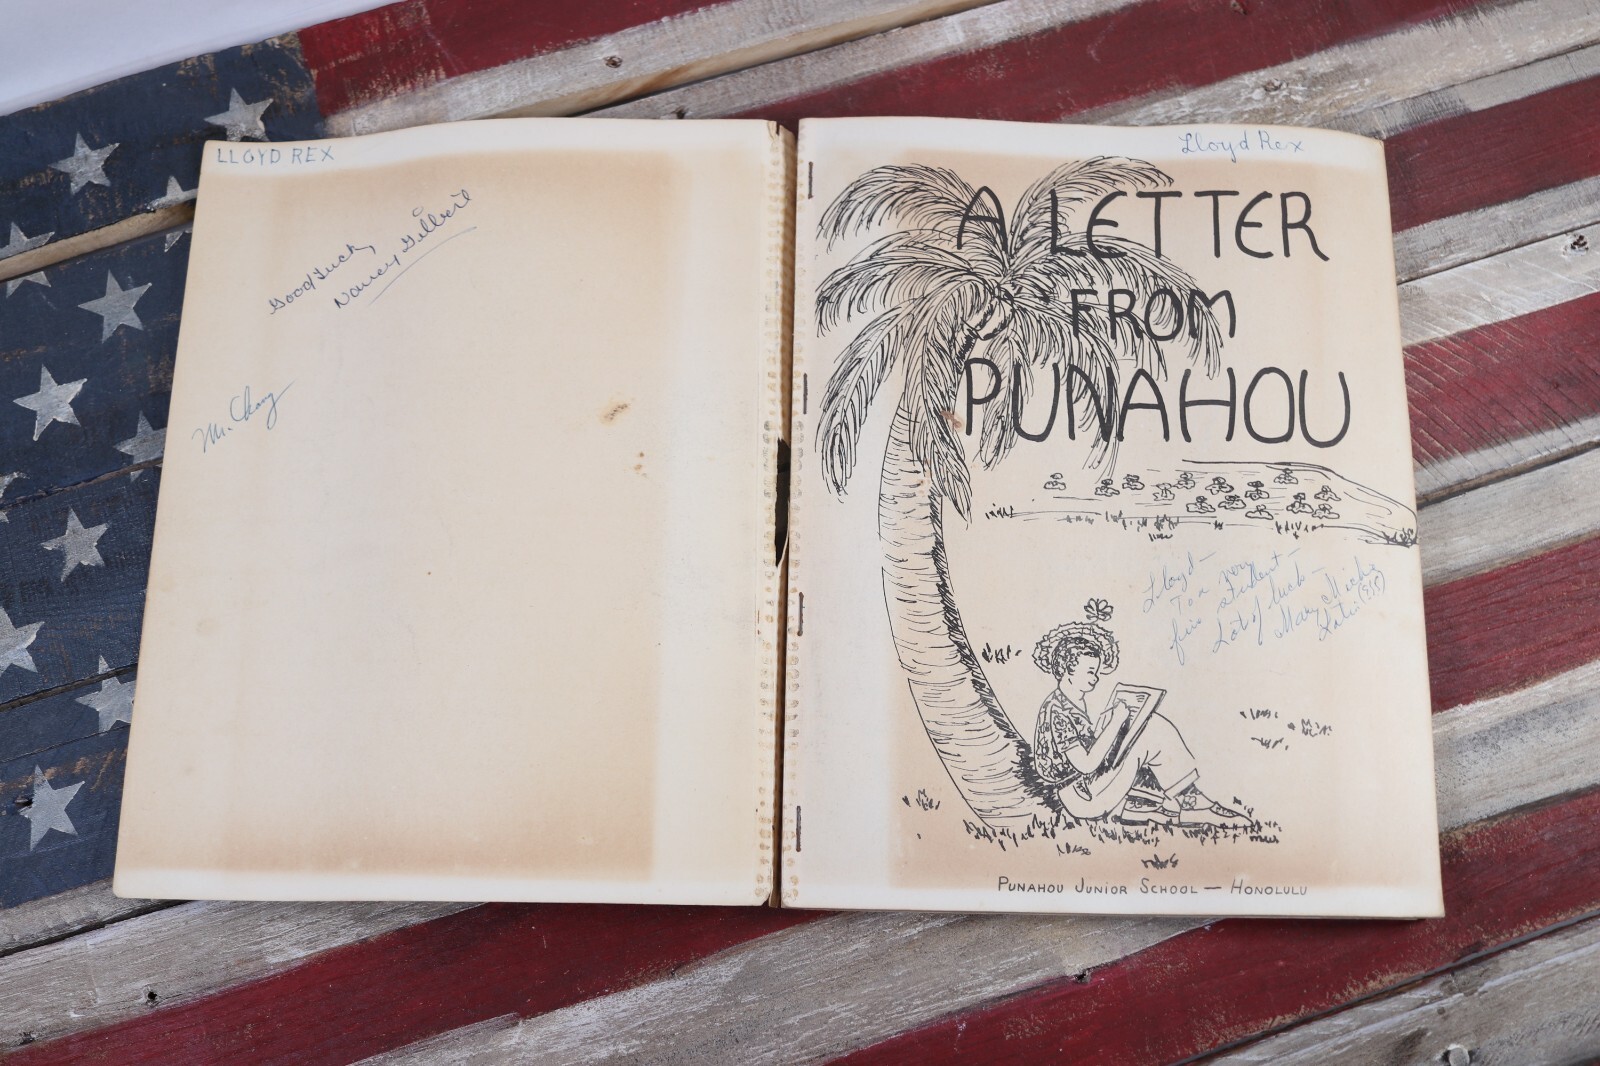 LLOYD REX
Good Luck,
Nancy Gilbert
M. Chang
Lloyd Rex
A LETTER
FROM
PUNAHOU
Lloyd—
To a very
fine student—
Lot of luck—
Mary
Latin
PUNAHOU JUNIOR SCHOOL — HONOLULU